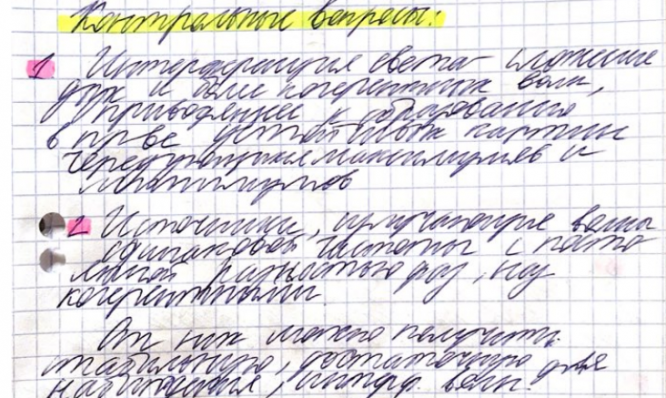 Контрольные вопросы:
1 Интерференция света - сложение
двух и более когерентных волн,
приводящее к образованию
в пр-ве устойчивых картин
чередующихся максимумов и
минимумов
2 Источники, излучающие волны
одинаковой частоты с посто
янной разностью фаз, наз
когерентными
От них можно получить
стабильную, достаточную для
наблюдения, интерф. волн.